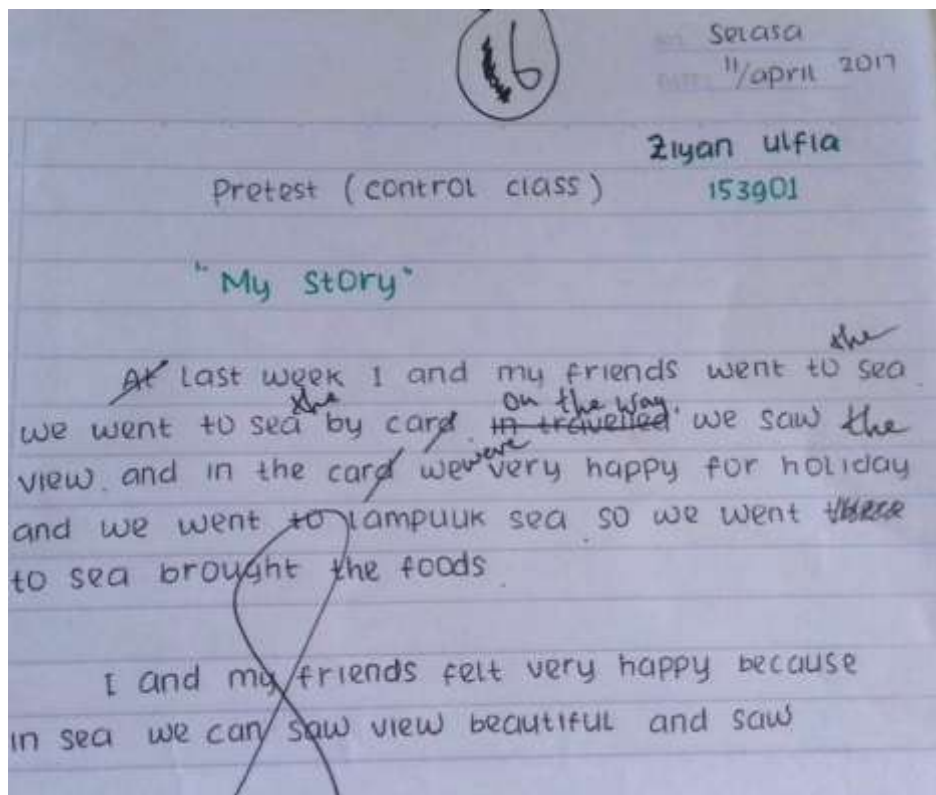 16
Selasa
11/april 2017
Ziyan ulfia
Pretest (control class) 153901
"My Story"
the
At Last week I and my friends went to sea
the on the way
we went to sea by card. in travelled we saw the
were
view. and in the card we very happy for holiday
and we went to lampuuk sea so we went there
to sea brought the foods.
I and my friends felt very happy because
in sea we can saw view beautiful and saw